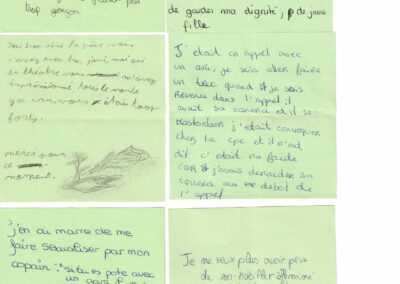 trop garçon
de garder ma dignité, p de jeune
fille
J'ai bien aimé la pièce vous
n'avez bien joué, moi qui
de théâtre vous m'avez
impressionné tous le monde
y a cru, vous étais trop
forts.
merci pour
ce
moment.
J'était en appel avec
un ami, je suis aller faire
un truc quand je sois
Revenu dans l'appel il
avait sa camera et il se
Masterben j'etait convoquer
chez la cpe et il m'ont
dit c'etait ma faute
car j'avais demander sa
camera au debut de
l'appel
j'en ai marre de me
faire sexualiser par mon
copain : "si tu es pote avec
un gars
Je ne veux plus avoir peur
de m-habiller féminine